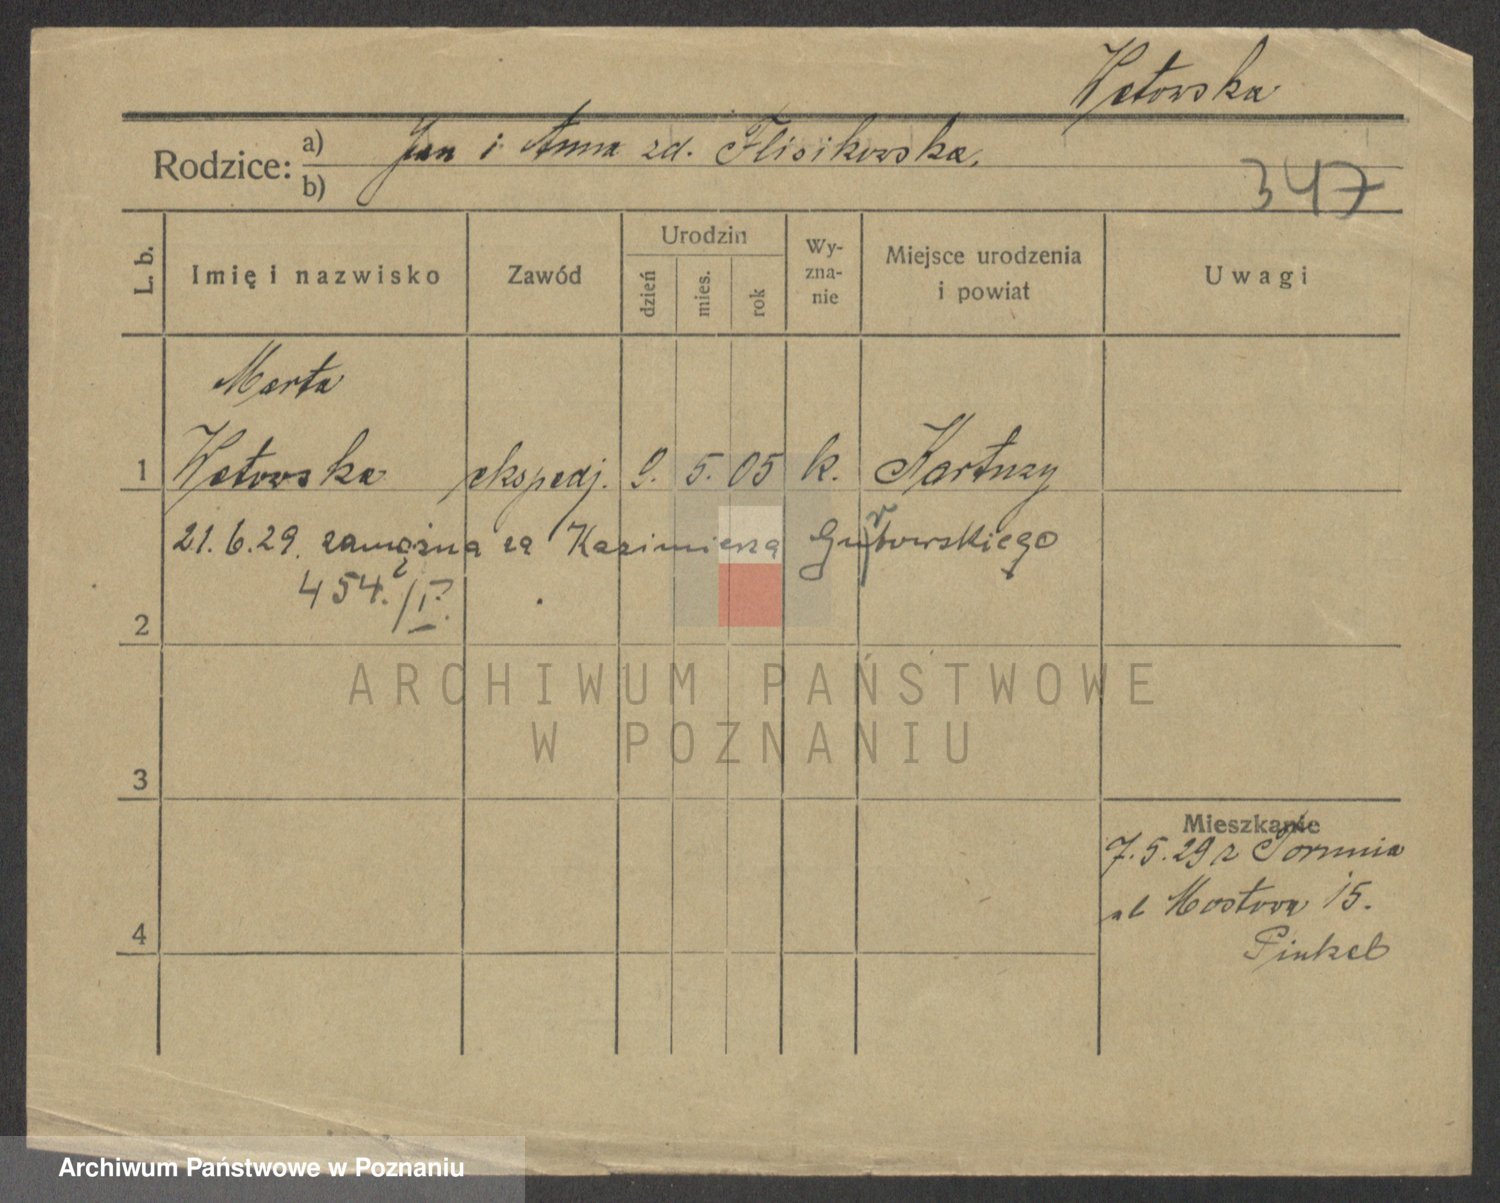 Wetowska
Rodzice: a) Jan i Anna zd. Flisikowska.
b)
347
L. b. Imię i nazwisko Zawód Urodzin dzień mies. rok Wy-zna-nie Miejsce urodzenia i powiat Uwagi
Marta
1 Wetowska ekspedj. 9. 5. 05 k. Kartuzy
21.6.29. zamężna za Kazimierza
454./I.
2
ARCHIWUM PAŃSTWOWE
W POZNANIU
3
Mieszkanie
7.5.29 z Torunia
ul Mostowa 15.
4
Pinkel
Archiwum Państwowe w Poznaniu